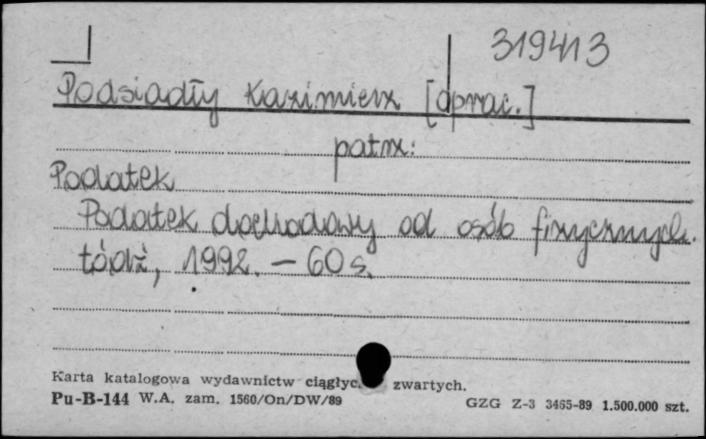 319413
Podsiadły Kazimierz [oprac.]
patrz:
Podatek
Podatek dochodowy od osób fizycznych.
Łódź, 1992. — 60 s.
Karta katalogowa wydawnictw ciągłyc zwartych.
Pu-B-144 W.A. zam. 1560/On/DW/89
GZG Z-3 3465-89 1.500.000 szt.